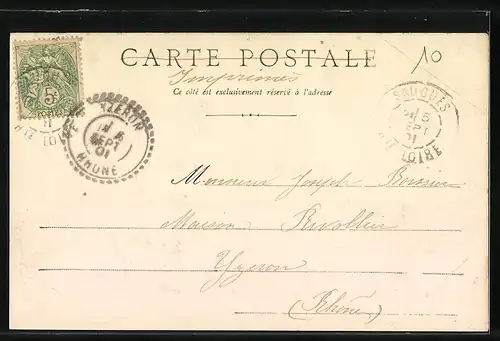 10
CARTE POSTALE
Imprimés
Ce côté est exclusivement réservé à l'adresse
5
SAUGUES
5
SEPT
01
Hte LOIRE
YZERON
6
SEPT
01
RHÔNE
Monsieur Joseph
Maison Rivollier
Yzeron
(Rhône)